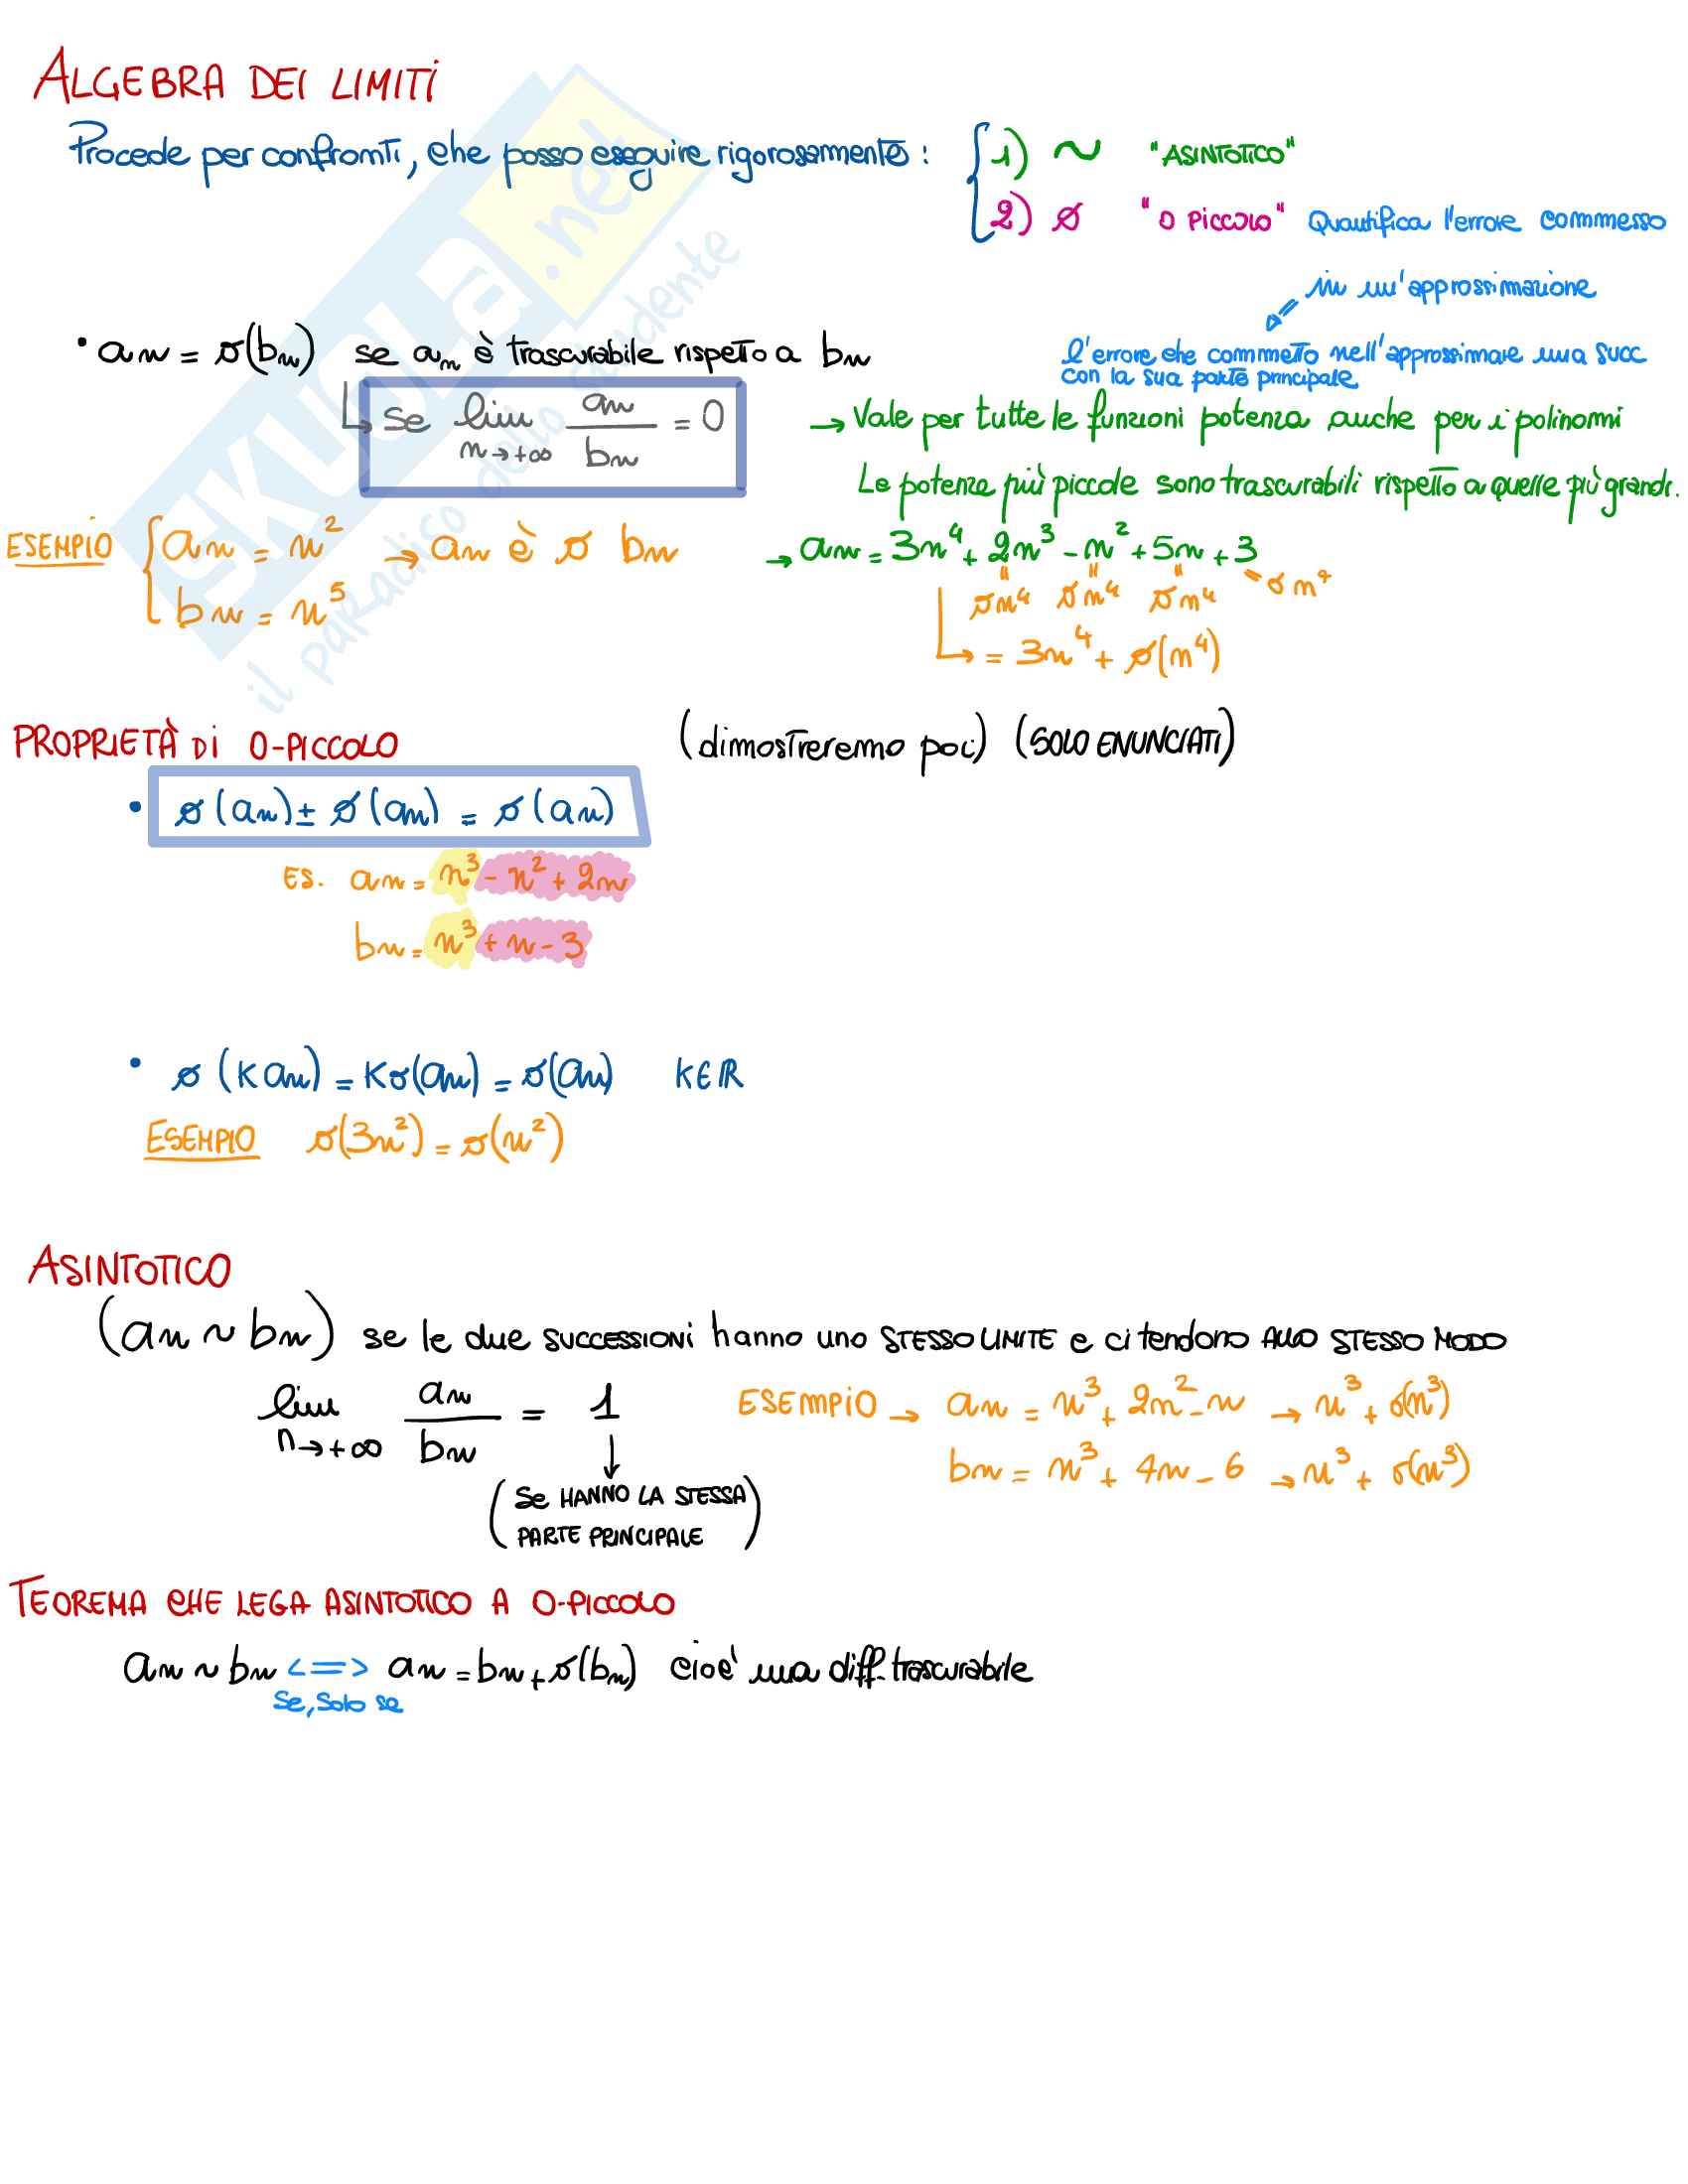 ALGEBRA DEI LIMITI
Procede per confronti, che posso eseguire rigorosamente: { 1) ~ "ASINTOTICO"
2) o "O PICCOLO" Quantifica l'errore commesso
in un'approssimazione
l'errore che commetto nell'approssimare una succ
con la sua parte principale
• an = o(bn) se an è trascurabile rispetto a bn
↳ se lim n→+∞ an/bn = 0
→ Vale per tutte le funzioni potenza anche per i polinomi
Le potenze più piccole sono trascurabili rispetto a quelle più grandi.
ESEMPIO { an = n² → an è o bn
bn = n⁵
→ an = 3n⁴ + 2n³ - n² + 5n + 3
on⁴ on⁴ on⁴ = on⁴
↳ = 3n⁴ + o(n⁴)
PROPRIETÀ DI O-PICCOLO (dimostreremo poi) (SOLO ENUNCIATI)
• o(an) ± o(an) = o(an)
ES. an = n³ - n² + 2n
bn = n³ + n - 3
• o(K an) = K o(an) = o(an) K∈ℝ
ESEMPIO o(3n²) = o(n²)
ASINTOTICO
(an ~ bn) se le due SUCCESSIONI hanno uno STESSO LIMITE e ci tendono ALLO STESSO MODO
lim n→+∞ an/bn = 1
(SE HANNO LA STESSA
PARTE PRINCIPALE)
ESEMPIO → an = n³ + 2n² - n → n³ + o(n³)
bn = n³ + 4n - 6 → n³ + o(n³)
TEOREMA CHE LEGA ASINTOTICO A O-PICCOLO
an ~ bn <=> an = bn + o(bn) cioè una diff. trascurabile
Se, Solo se
SKUOLA.net
il paradiso dello studente